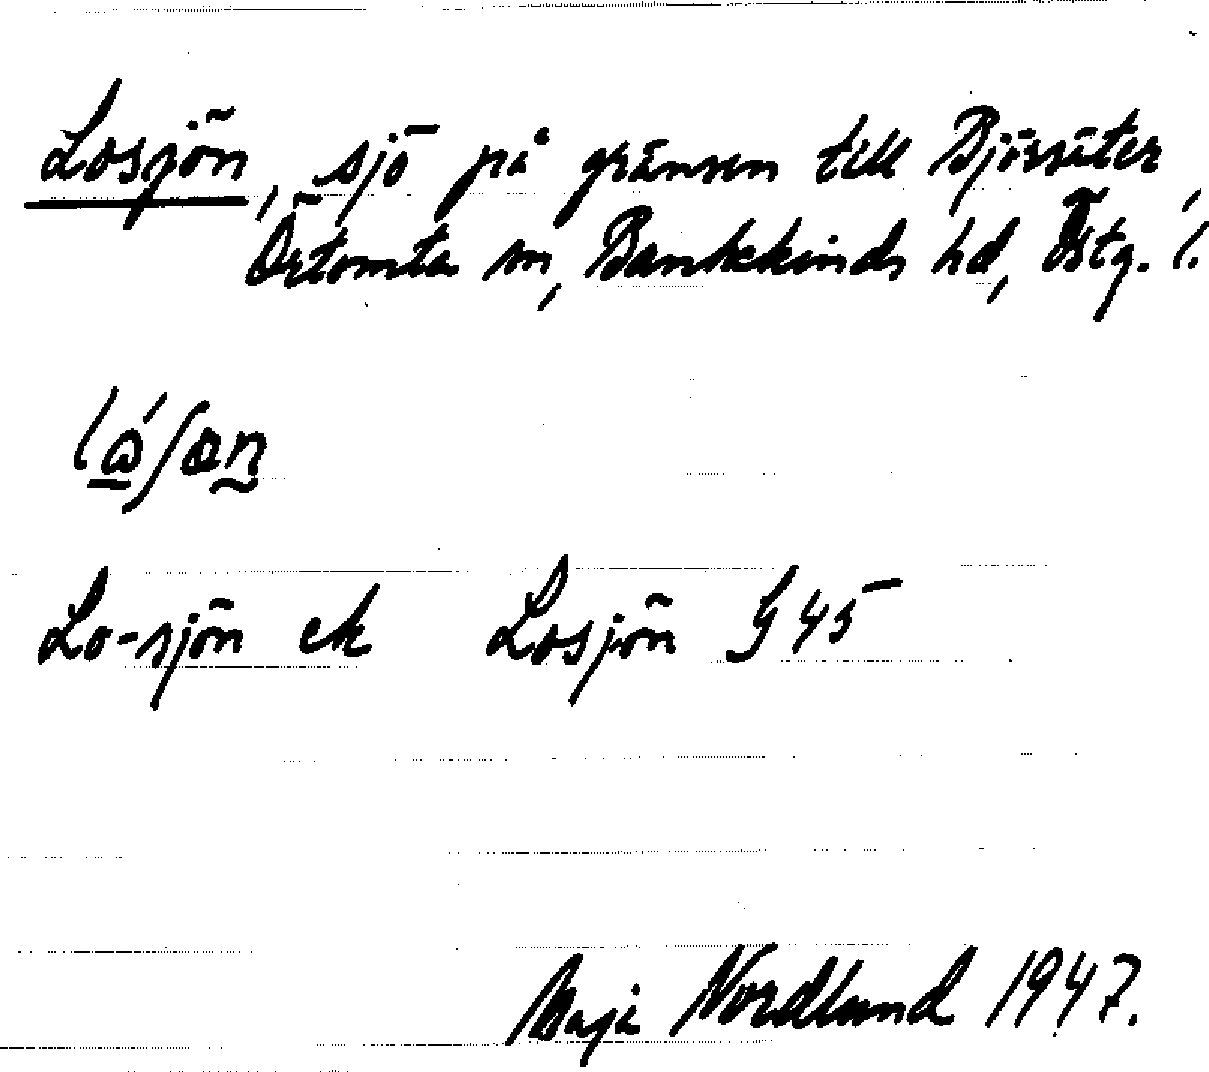 Losjön, sjö på gränsen till Björsäter
Örtomta sn, Bankekinds hd, Östg. l.
Lo-sjön ek Losjön G 45
Maja Nordlund 1947.